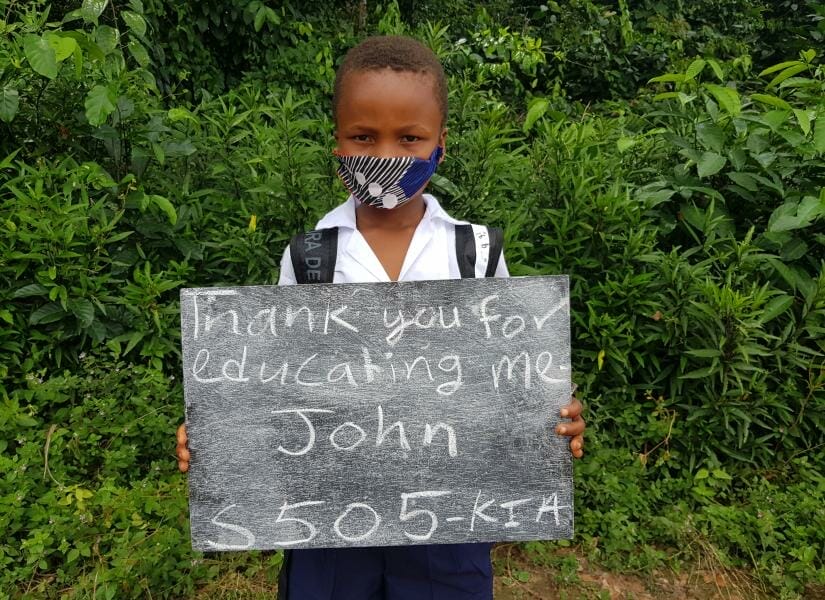 RA DE
Thank you for
educating me.
John
S505-KIA